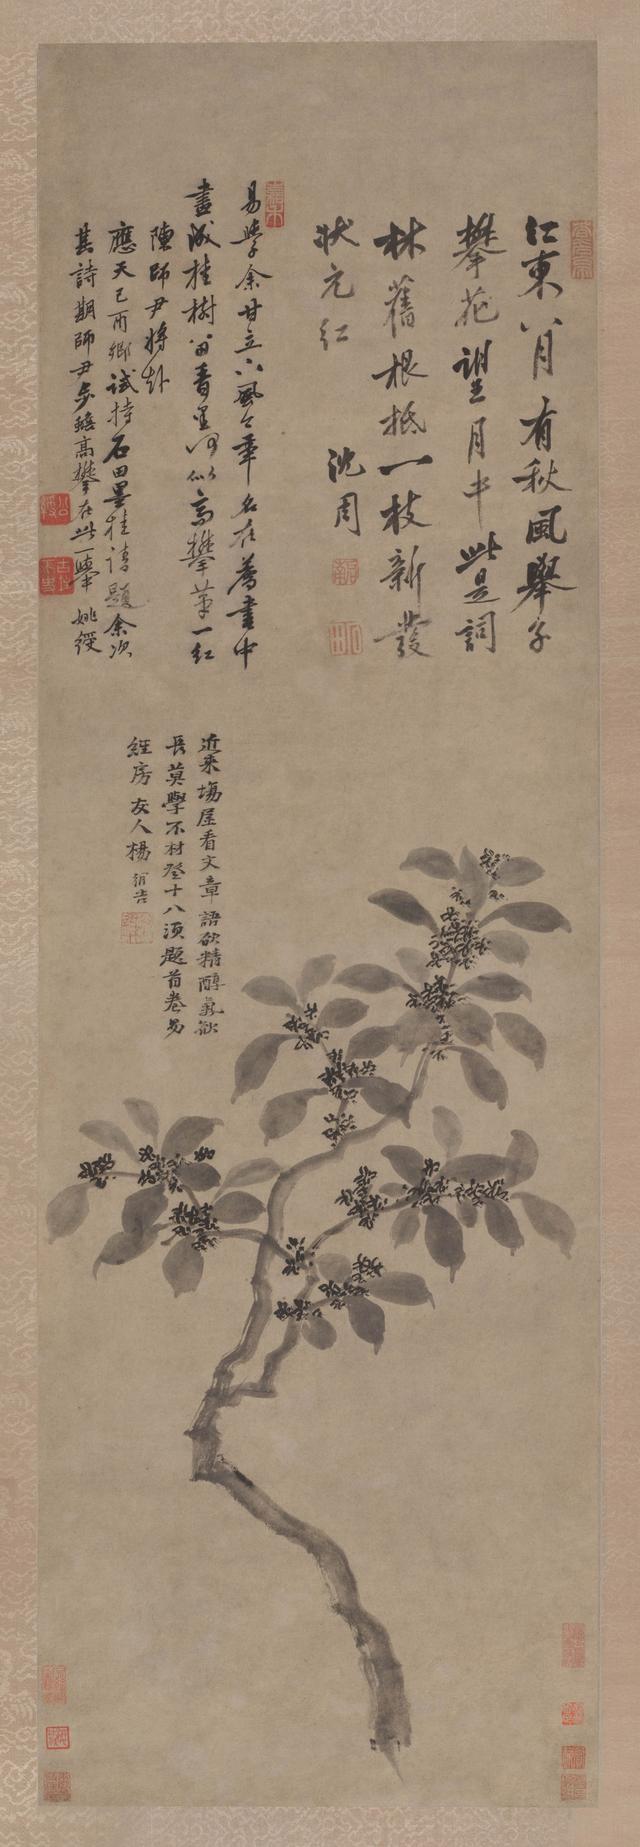 江東八月有秋風舉子
攀花望月中此是詞
林舊根柢一枝新發
狀元紅
沈周
易學余甘立下風今年名在薦書中
畫成桂樹
高攀第一紅
陳師尹將赴
應天己酉鄉試持石田墨桂請題余次
其詩期師尹步蟾高攀在此一舉 姚綬
近來場屋看文章語欲精醇氣欲
長莫學不材登十八須題首卷易
經房 友人楊